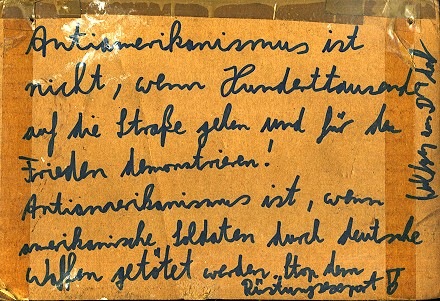 Antiamerikanismus ist
nicht, wenn Hunderttausende
auf die Straße gehen und für den
Frieden demonstrieren!
Antiamerikanismus ist, wenn
amerikanische Soldaten durch deutsche
Waffen getötet werden. Stop dem
Rüstungsexport